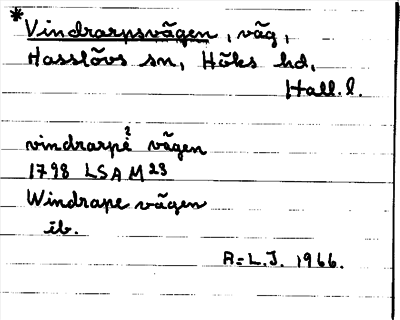 *Vindrarpsvägen, väg,
Hasslövs sn, Höks hd,
Hall. l.
vindrarpe? vägen
1798 LSA M 23
Windrape vägen
ib.
R=L.J. 1966.